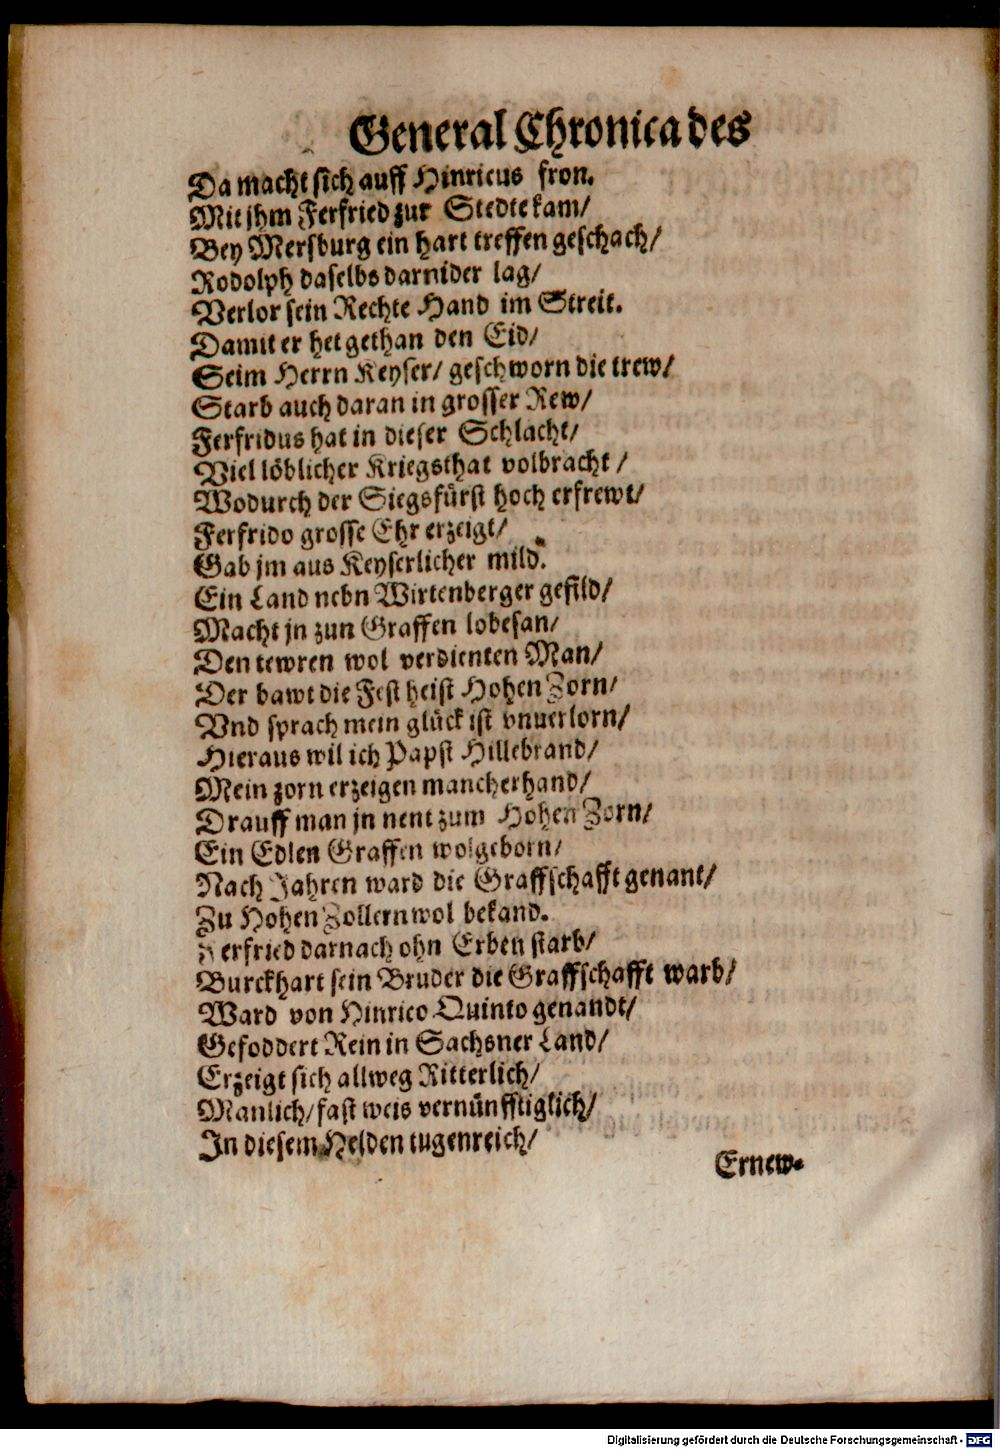 General Chronica des
Da macht sich auff Hinricus fron.
Mit jhm Ferfried zur Stedte kam/
Bey Mersburg ein hart treffen geschach/
Rodolph daselbs darnider lag/
Verlor sein Rechte Hand im Streit.
Damit er het gethan den Eid/
Seim Herrn Keyser/ geschworn die trew/
Starb auch daran in grosser Rew/
Ferfridus hat in dieser Schlacht/
Viel löblicher Kriegsthat volbracht/
Wodurch der Siegsfürst hoch erfrewt/
Ferfrido grosse Ehr erzeigt/
Gab jm aus Keyserlicher mild.
Ein Land nebn Wirtenberger gefild/
Macht jn zun Graffen lobesan/
Den tewren wol verdienten Man/
Der bawt die Fest heist Hohen Zorn/
Vnd sprach mein glück ist vnuerlorn/
Hieraus wil ich Papst Hillebrand/
Mein zorn erzeigen mancherhand/
Drauff man jn nent zum Hohen Zorn/
Ein Edlen Graffen wolgeborn/
Nach Jahren ward die Graffschafft genant/
Zu Hohen Zollern wol bekand.
Ferfried darnach ohn Erben starb/
Burckhart sein Bruder die Graffschafft warb/
Ward von Hinrico Quinto genandt/
Gefoddert Rein in Sachsner Land/
Erzeigt sich allweg Ritterlich/
Manlich/ fast weis vernünfftiglich/
In diesem Helden tugenreich/
Ernew-
Digitalisierung gefördert durch die Deutsche Forschungsgemeinschaft - DFG